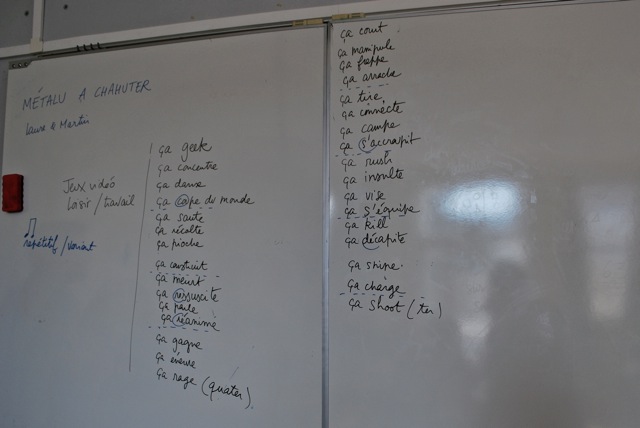 MÉTALU A CHAHUTER
Laura & Martin
Jeux vidéo
Loisir / travail
répétitif / variant
ça geek
ça concentre
ça danse
ça cape du monde
ça saute
ça récolte
ça pioche
ça construit
ça meurt
ça ressuscite
ça parle
ça réanime
ça gagne
ça énerve
ça rage (quater)
ça court
ça manipule
ça frappe
ça
ça tire
ça connecte
ça campe
ça s'accroupit
ça rush
ça insulte
ça vise
ça s'équipe
ça kill
ça décapite
ça
ça charge
ça shoot (ter)